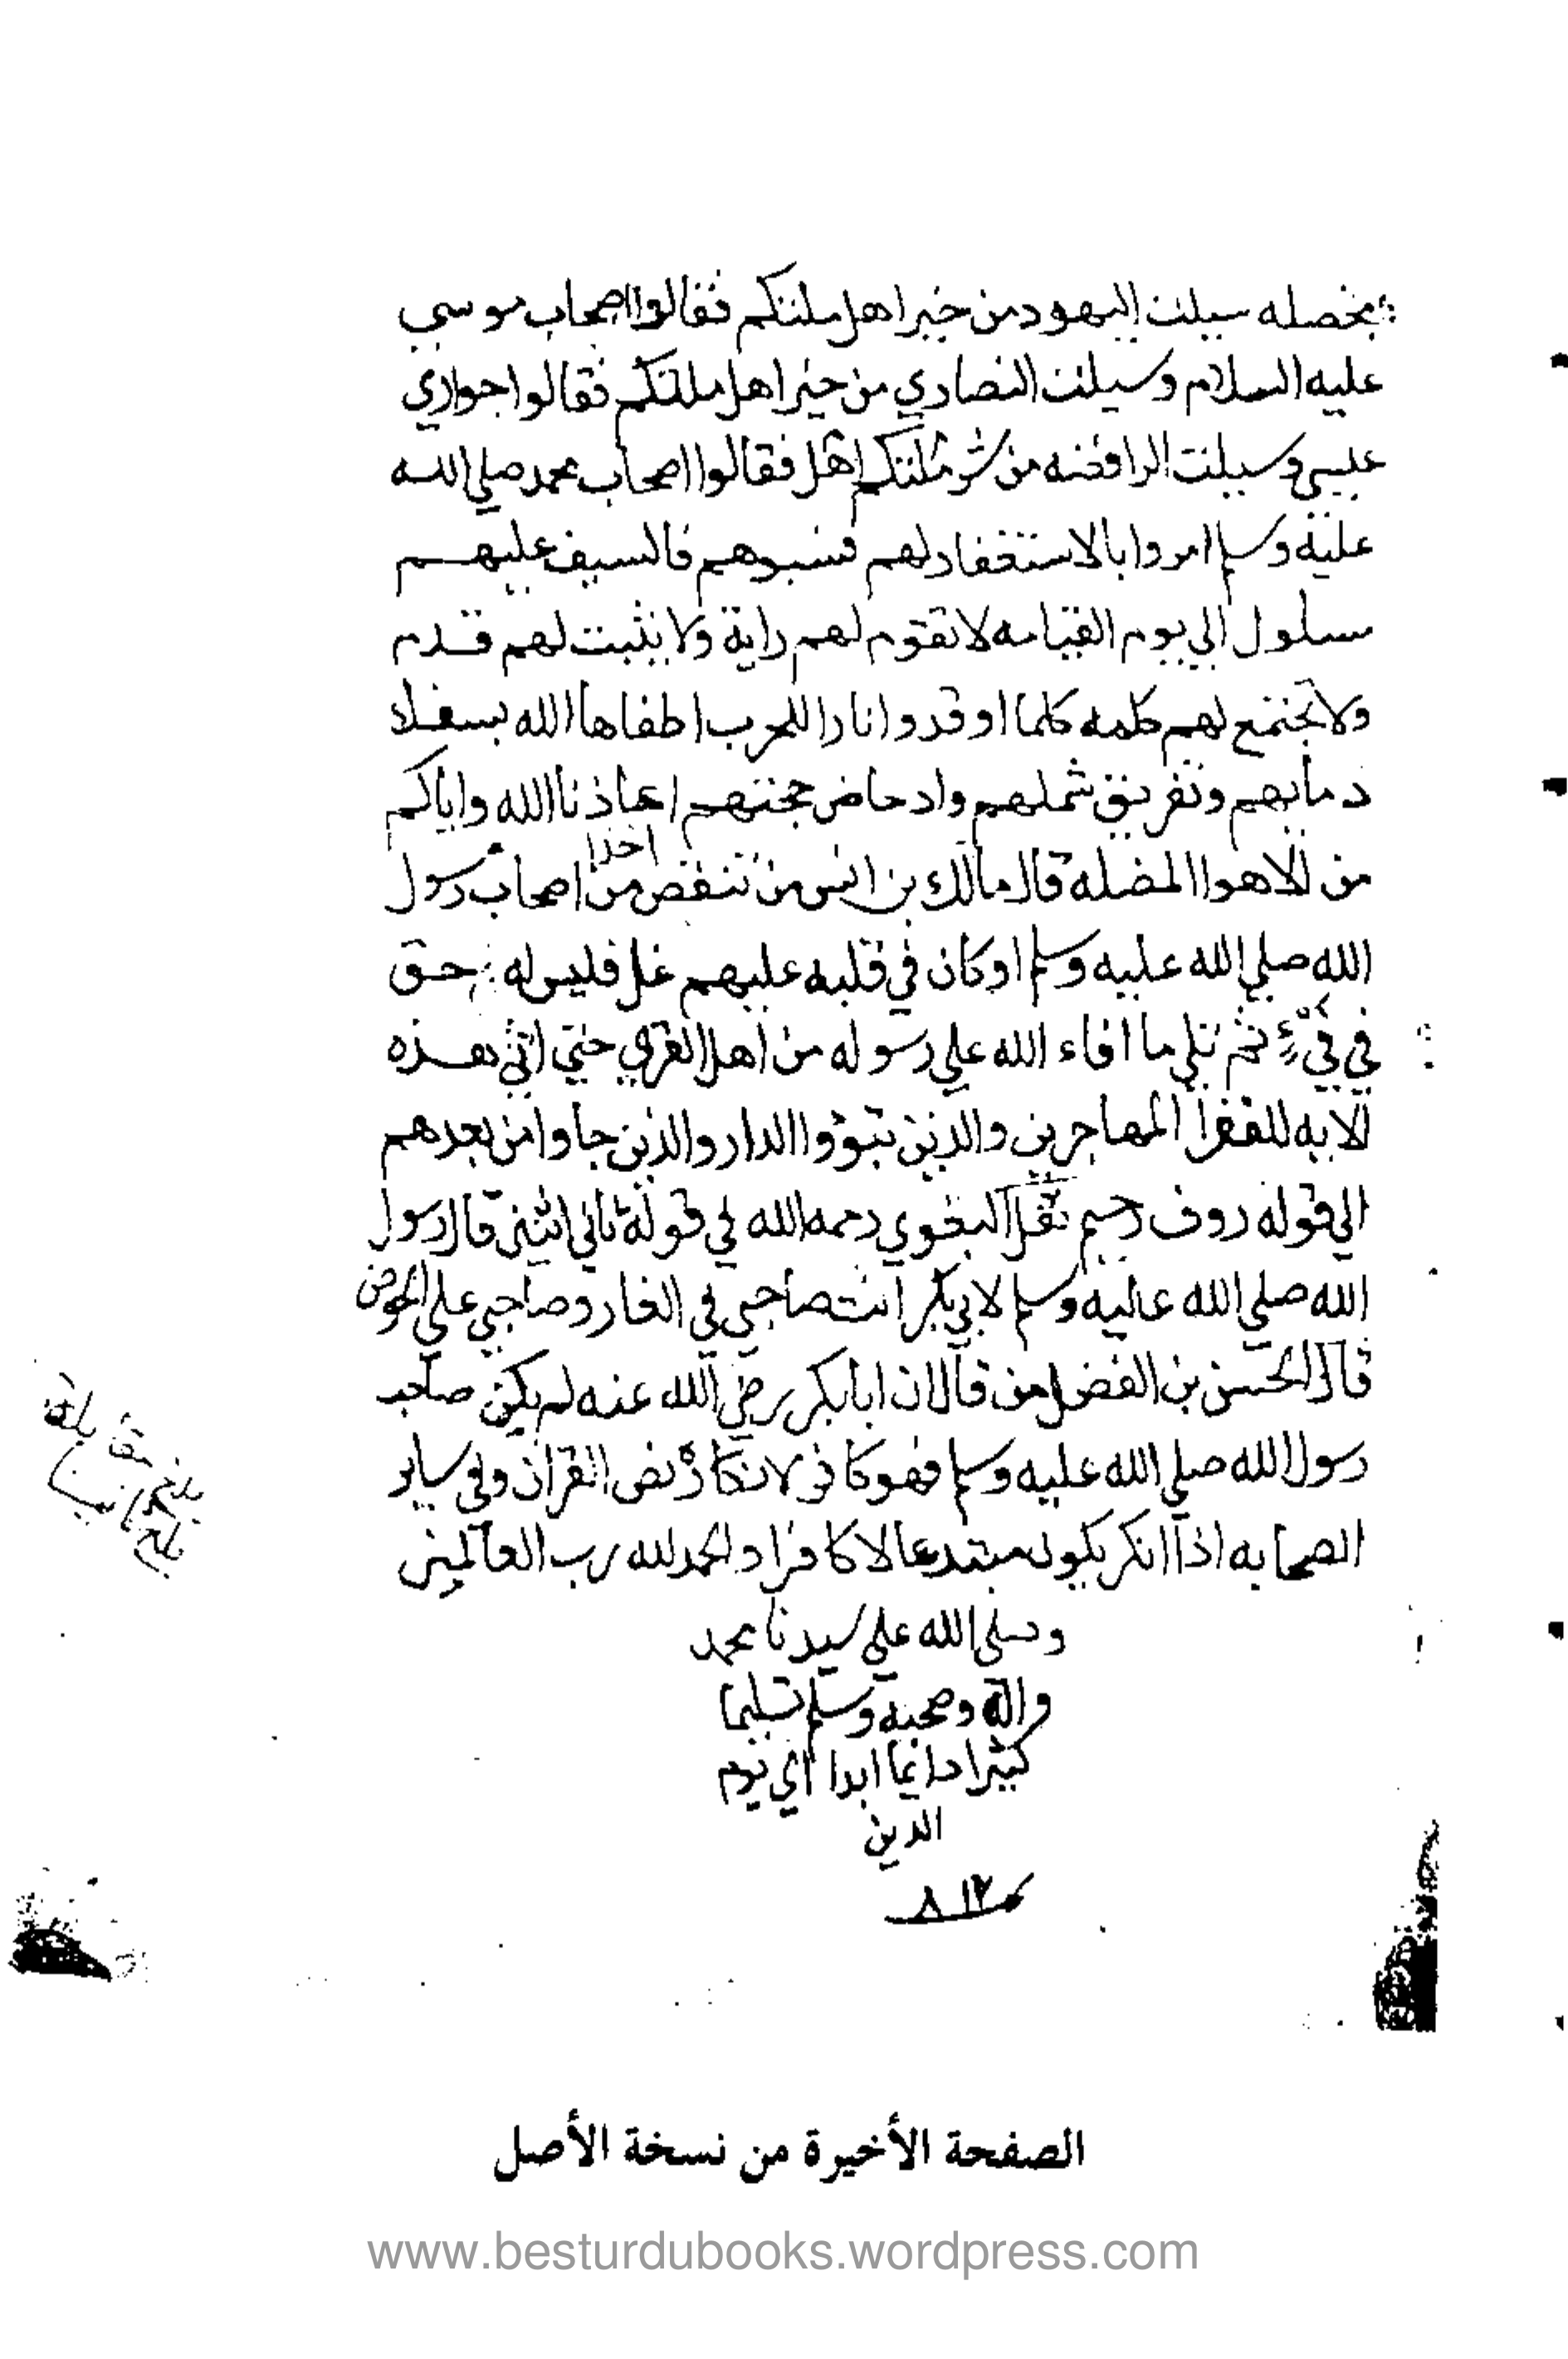 بخصله سيلت اليهود من خير اهل ملتكم فقالوا اصحاب موسي
عليه السلام وسيلت النصاري من خير اهل ملتكم فقالوا حواري
عيسي وسيلت الرافضه من شر ملتكم اهل فقالوا اصحاب محمد صلي الله
عليه وسلم امروا بالاستغفار لهم فسبوهم فالسيف عليهم
مسلول الي يوم القيامه لا تقوم لهم راية ولا يثبت لهم قدم
ولا تجتمع لهم كلمه كلما اوقدوا نارا للحرب اطفاها الله بسفك
دمايهم وتفريق شملهم وادحاض حجتهم اعاذنا الله واياكم
من الاهوا المضله قال مالك بن انس من تنقص من احدا اصحاب رسول
الله صلي الله عليه وسلم او كان في قلبه عليهم غل فليس له حق
في فيء ثم تلي ما افاء الله علي رسوله من اهل القري حتي اتي هذه
الايه للفقرا المهاجرين والذين تبوؤوا الدار والذين جاوا من بعدهم
الي قوله روف رحيم نقل البغوي رحمه الله في قوله ثاني اثنين قال رسول
الله صلي الله عليه وسلم لابي بكر انت صاحبي في الغار وصاحبي علي الحوض
قال الحسن بن الفضل من قال ان ابا بكر رضي الله عنه لم يكن صاحب
رسول الله صلي الله عليه وسلم فهو كافر لانكاره نص القران وفي ساير
الصحابه اذا انكر يكون مبتدعا لا كافرا والحمد لله رب العالمين
وصلي الله علي سيدنا محمد
واله وصحبه وسلم تسليما
كثيرا دايما ابدا الي يوم
الدين
٨١٢
بلغ مقابلة
الصفحة الأخيرة من نسخة الأصل
www.besturdubooks.wordpress.com